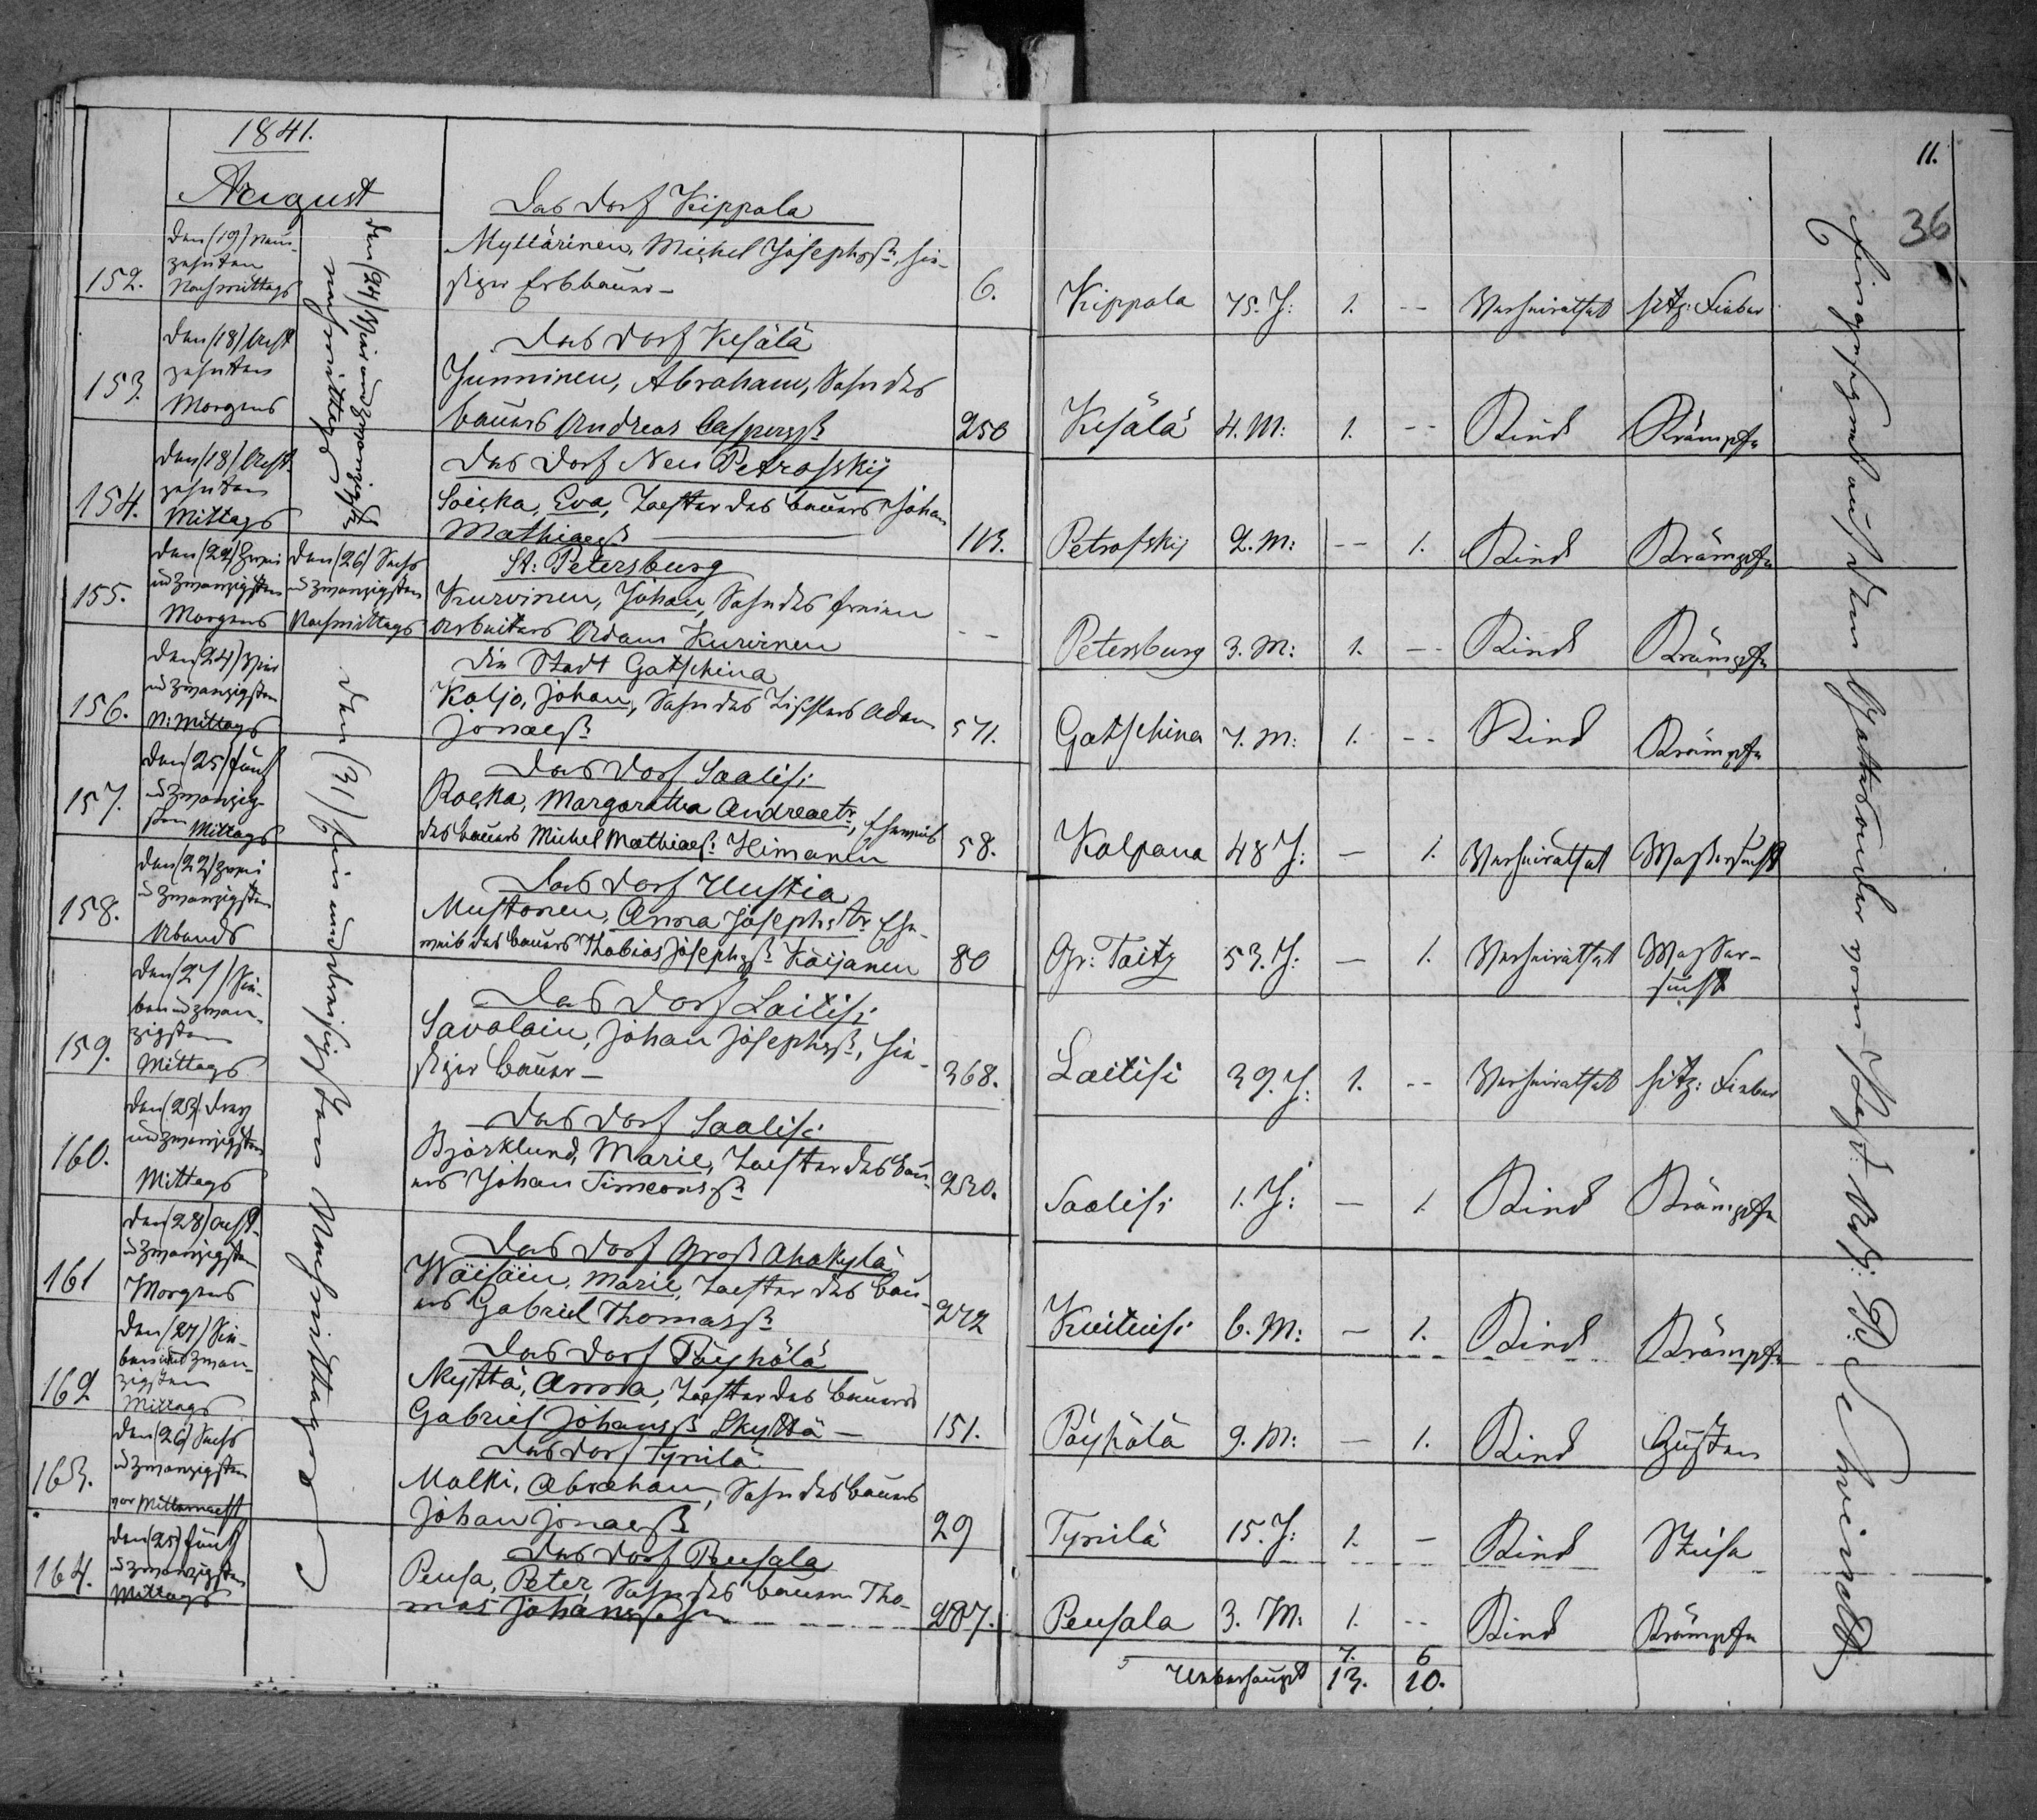 1841.
11.
36
August
Das Dorf Kippala
152.
den (19) neun-
zehnten
Nachmittags
den (24) Vier und zwanzigsten
nachmittags
Myttärinen, Michel Josephsß., hie-
siger Erbbauer –
6.
Kippala 75. J: 1. -- Verheirathet hitz: Fieber
153.
den (18) Acht
zehnten
Morgens
Das Dorf Kesälä
Junninen, Abraham, Sohn des
Bauers Andreas Caspersß
250
Kesälä 4. M: 1. -- Kind Krämpfe
154.
den (18) Acht
zehnten
Mittags
Das Dorf Neu Petrofskij
Soicka, Eva, Tochter des Bauers Johan
Mathiaeß
113.
Petrofskij 2. M: -- 1. Kind Krämpfe
155.
den (22) Zwei
und zwanzigsten
Morgens
den (26) Sechs
und zwanzigsten
Nachmittags
St: Petersburg
Kurvinen, Johan, Sohn des freien
Arbeiters Adam Kurvinen
--
Petersburg 3. M: 1. -- Kind Krämpfe
156.
den (24) Vier
und zwanzigsten
N: Mittags
den (31) Ein und dreisigsten Nachmittags
Die Stadt Gatschina
Koljo, Johan, Sohn des Tischlers Adam
Jonaeß
571.
Gatschina 7. M: 1. -- Kind Krämpfe
157.
den (25) fünf
und zwanzig-
sten Mittags
Das Dorf Saalisi
Rocka, Margaretha Andreaetr, Eheweib
des Bauers Michel Mathiaeß: Himanen
58.
Kolpana 48 J: — 1. Verheirathet Wassersucht
158.
den (22) zwei
und zwanzigsten
Abends
Das Dorf Uustia
Mustonen, Anna Josephstr. Ehe-
weib des Bauers Thobias Josephsß Käijanen
80
Gr: Taitz 53. J: — 1. Verheirathet Wasser-
sucht
159.
den (27) Sie-
ben und zwan-
zigsten
Mittags
Das Dorf Laitisi
Savolain, Johan Josephsß., hie-
siger Bauer –
368.
Laitisi 39. J: 1. -- Verheirathet hitz: Fieber
160.
den (23) Drey
und zwanzigsten
Mittags
Das Dorf Saalisi
Björklund, Marie, Tochter des Bau-
ers Johan Simeonsß
230.
Saalisi 1. J: — 1. Kind Krämpfe
161
den (28) acht
und zwanzigsten
Morgens
Das Dorf Gross Ahakylä
Wäisäin, Marie, Tochter des Bau-
ers Gabriel Thomasß
272
6. M: — 1. Kind Krämpfe
162
den (27) Sie-
ben und zwan-
zigsten
Mittags
Das Dorf Päyhölä
Nyttä, Anna, Tochter des Bauers
Gabriel Johansß Skyttä —
151.
Päyhölä 9. M: — 1. Kind Husten
163.
den (26) Sechs
und zwanzigsten
vor Mitternacht
Das Dorf Tyrilä
Malki, Abraham, Sohn des Bauers
Johan Jonaeß
29
Tyrilä 15. J: 1. — Kind
164.
den (25) fünf
und zwanzigsten
Mittags
Das Dorf Pensala
Pensa, Peter, Sohn des Bauern Tho-
mas Johanssohn
287.
Pensala 3. M: 1. -- Kind Krämpfe
7. 6
Ueberhaupt 13. 10.
Eingesegnet auf dem Gottesacker vom Past: Adj: P: Schwindt